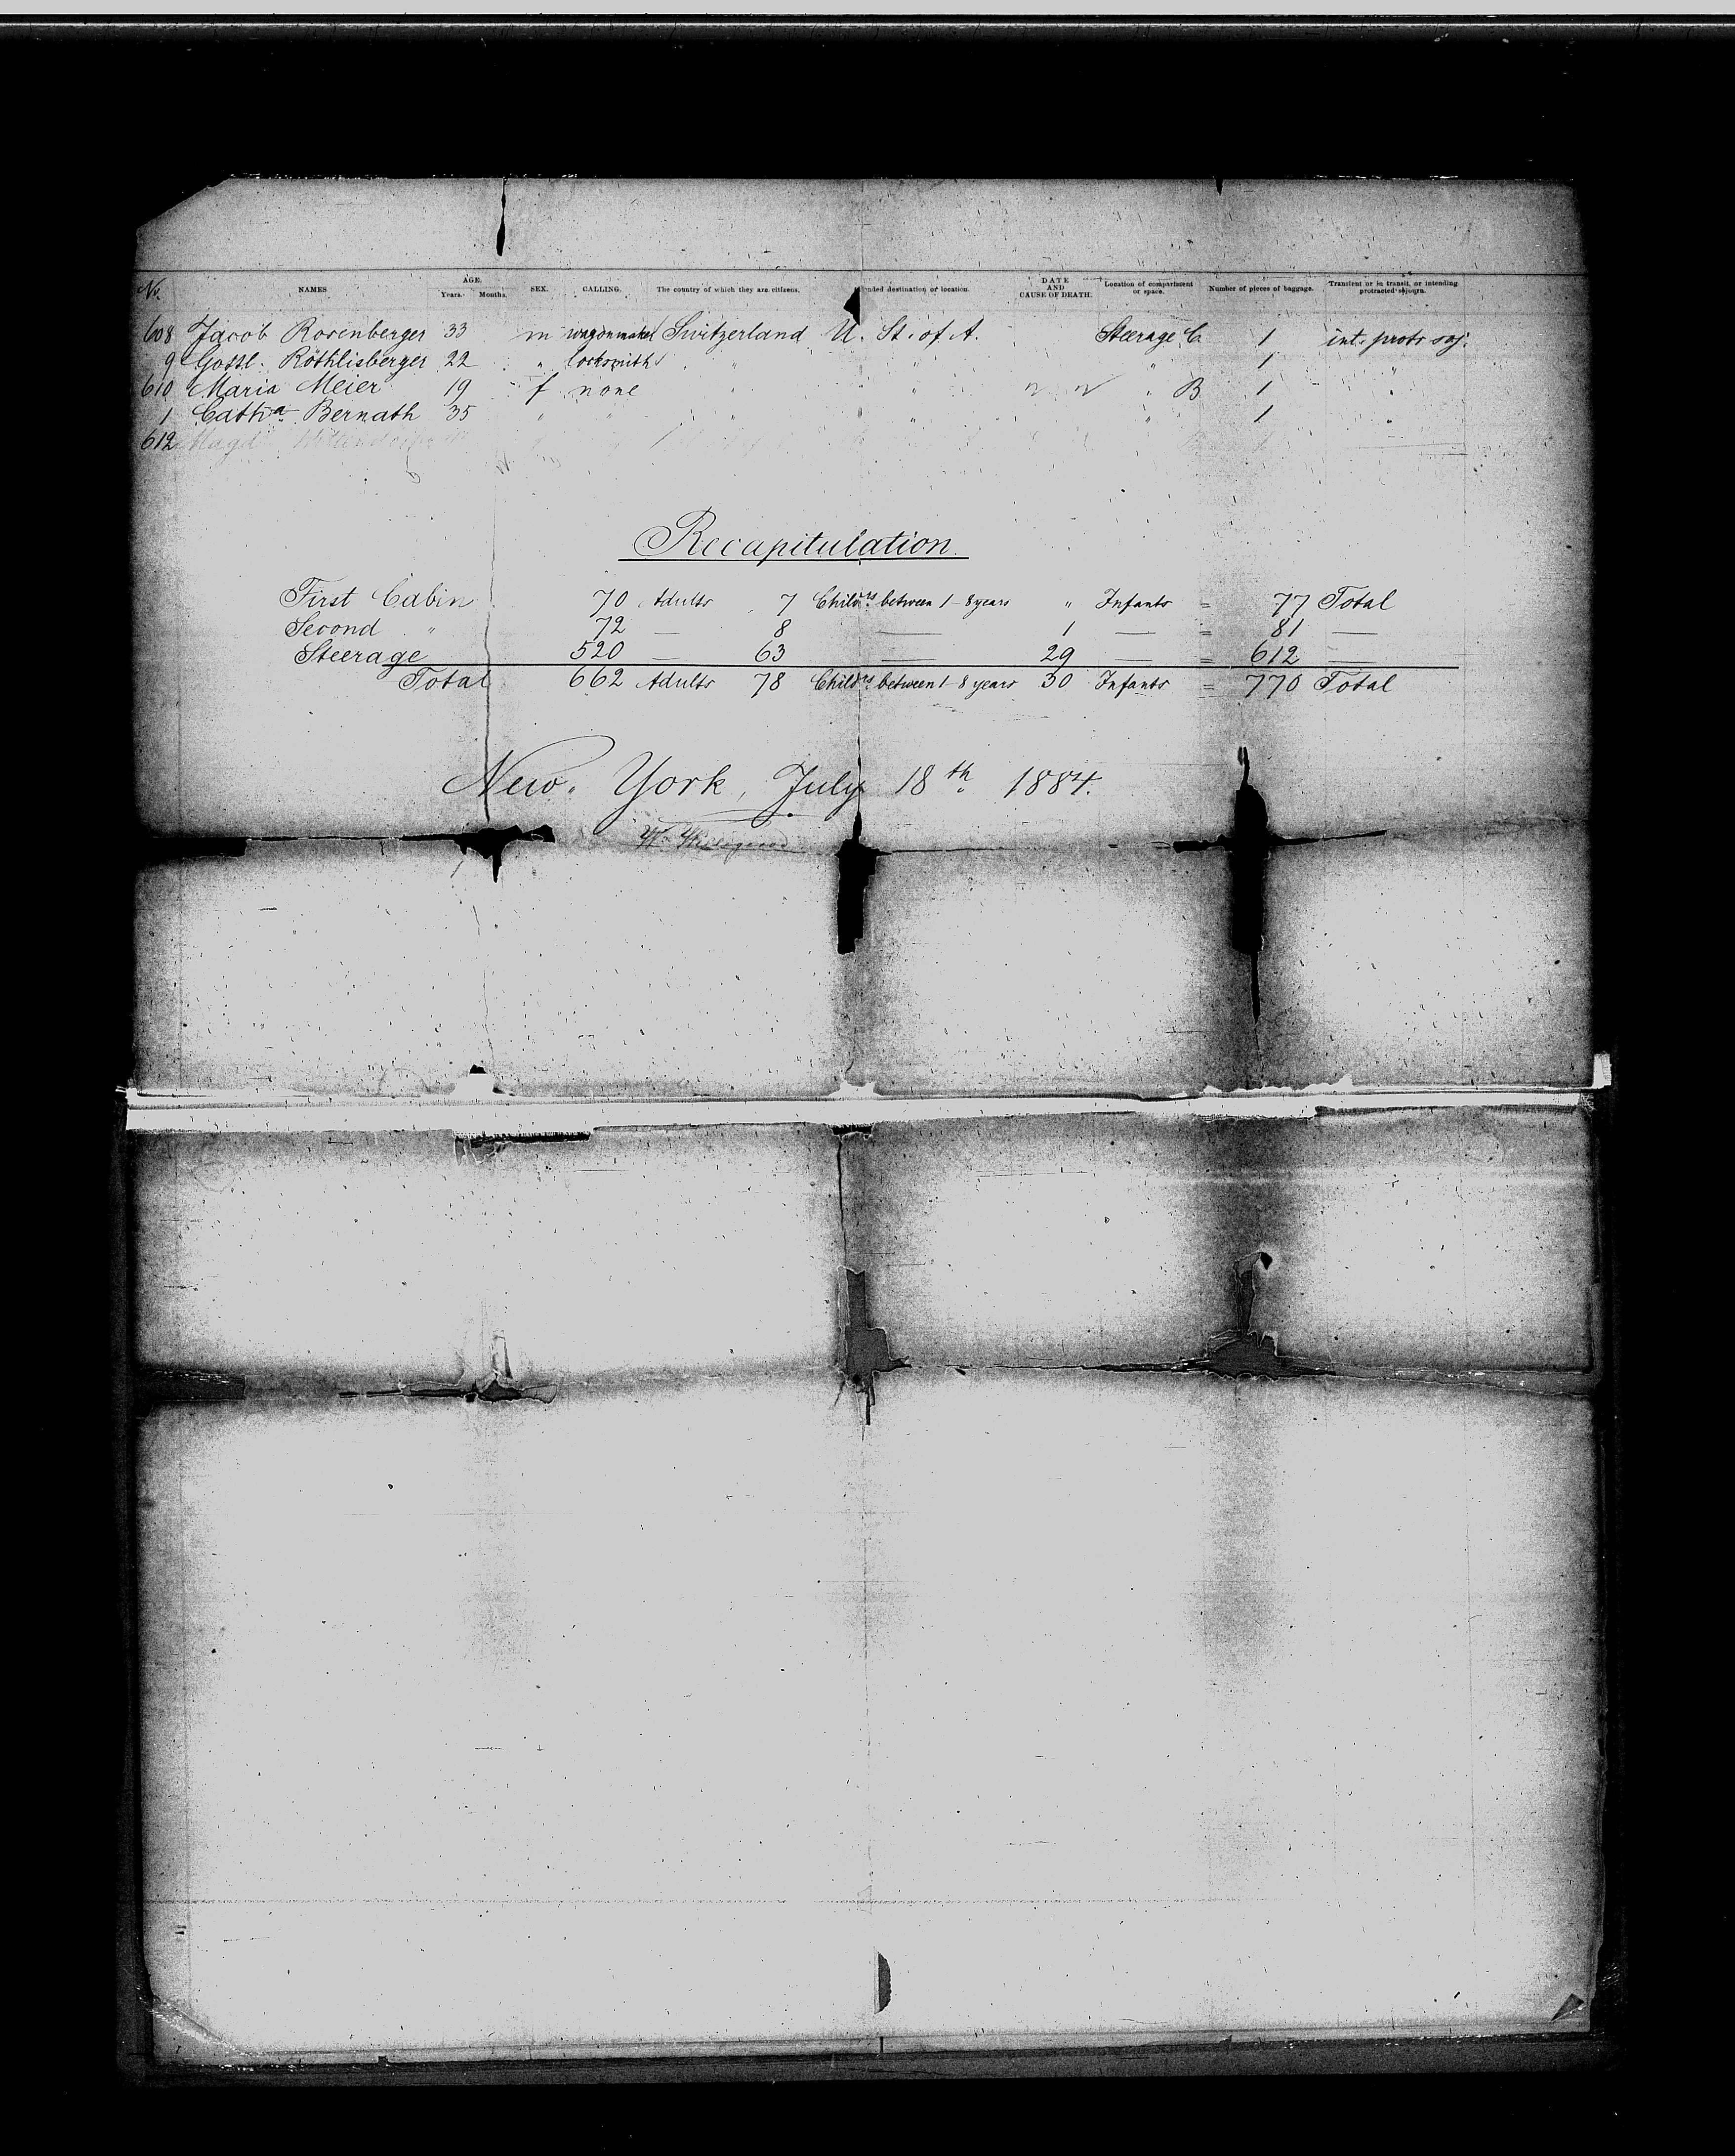 No. NAMES AGE. Years. Months. SEX. CALLING. The country of which they are citizens. nded destination or location. DATE AND CAUSE OF DEATH. Location of compartment or space. Number of pieces of baggage. Transient or in transit, or intending protracted sojourn.
608 Jacob Rosenberger 33 m wagonmaker Switzerland U. St. of A. Steerage C. 1 int. protr soj.
9 Gottl. Röthlisberger 22 " locksmith " " " 1 "
610 Maria Meier 19 f none " " " B 1 "
1 Catha Bernath 35 " " " " " 1 "
612 Magd
Recapitulation.
First Cabin 70 Adults 7 Childrs between 1-8 years " Infants = 77 Total
Second " 72 — 8 — 1 — = 81 —
Steerage 520 — 63 — 29 — = 612 —
Total 662 Adults 78 Childrs between 1-8 years 30 Infants = 770 Total
New York, July 18th 1884.